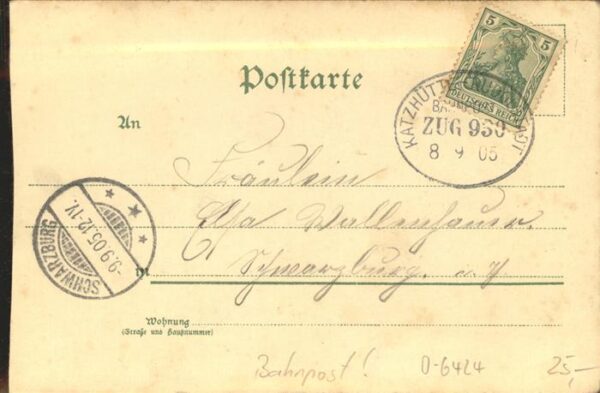 Postkarte
5 5
DEUTSCHES REICH
KATZHÜTTE
BAHNPOST
ZUG 930
8 9 05
An
Fräulein
Elsa Wallenhauer.
in Schwarzburg.
SCHWARZBURG
-9.9.05.12-1V.
Wohnung
(Straße und Hausnummer)
Bahnpost!
O-6424
25,-